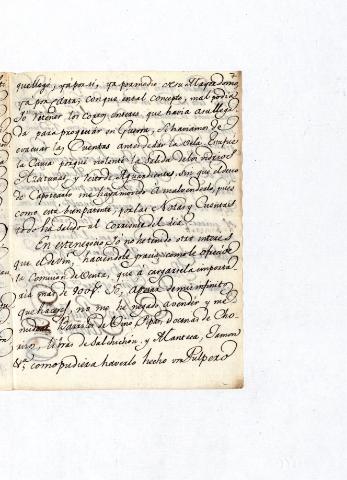 que llegó, ya por si, ya por medio de su Mayordomo
ya por carta; con que en tal concepto, mal podia
Yo retener los cortos enteres, que havia a su llega
da para proyectar en Guerra, si haviamos de
evacuar las Cuentas antes de dar la vela. En fue
la Causa porque violenté la salida de los
Azatunas, y resto de Aguardientes, sin que el deseo
de Capitanlo me haya movido a malvenderle, pues
como está bien patente, por las Notas y Cuentas
todo ha salido al corriente del dia
En este negocio Yo no he tenido otro interes
que el de Vm, haciendole gracia como le ofreci de
la Comision de Venta, que a cargarsela importa
ria mas de 900 f. Apesar de mi infinito
que hacer, no me he negado a vender y me
nudear Barriles de Vino, Pipas, Docenas de Cho
rizos, libras de Salchichón, y Manteca, Jamon
&a; como pudiera haverlo hecho un Pulpero